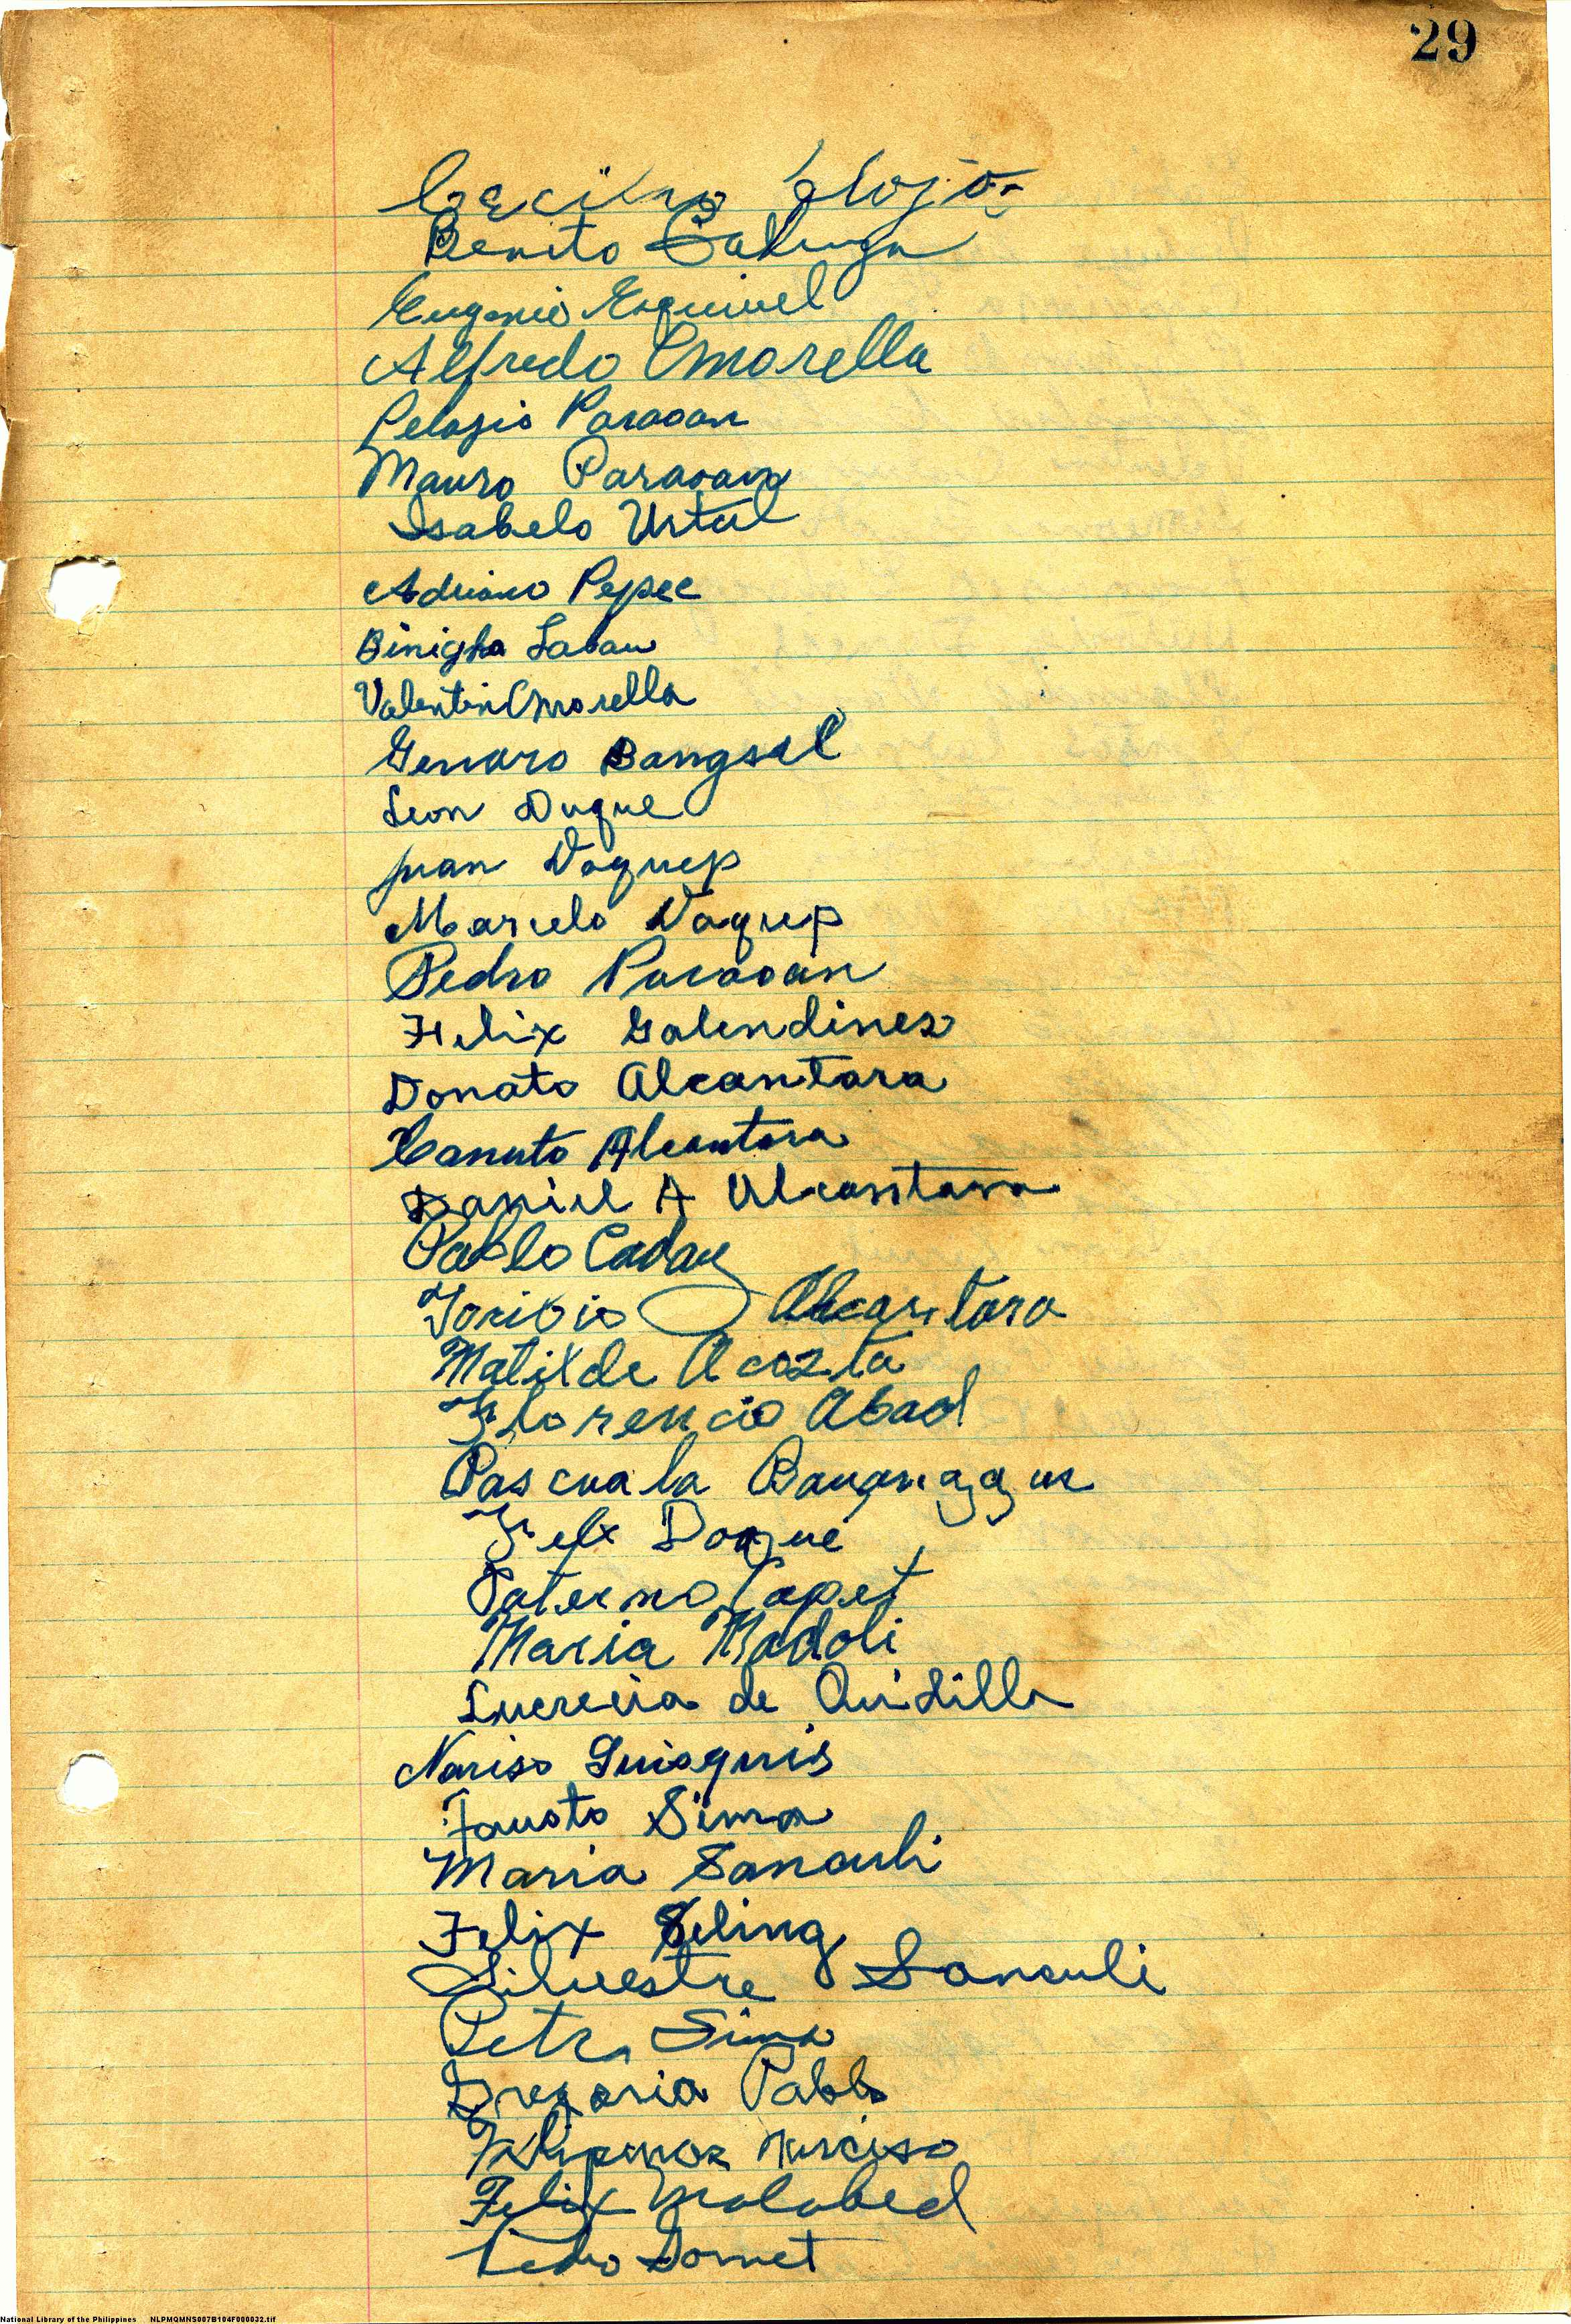 29
Benito
Eugenio Esquivel
Alfredo Omorella
Pelagio Paraoan
Mauro Paraoan
Isabelo Urtal
Adriano Pepec
Laban
Valentin Omorella
Genaro Bangsal
Leon Duque
Juan Daquep
Marcelo Daquep
Pedro Paraoan
Felix Galendines
Donato Alcantara
Canuto Alcantara
Daniel A Alcantara
Pablo Caday
Toribio Alcantara
Matilde Acosta
Florencio Abad
Pascuala
Felx Doque
Paterno Capet
Maria Madoli
Lucrecia de Quidilla
Nariso
Fausto Sima
Maria Sanculi
Felix Seling
Silvestre Sanculi
Petra Sima
Gregoria Pablo
Narciso
Felix Malabed
Pedro Domet
National Library of the Philippines NLPMQMNS007B104F000032.tif